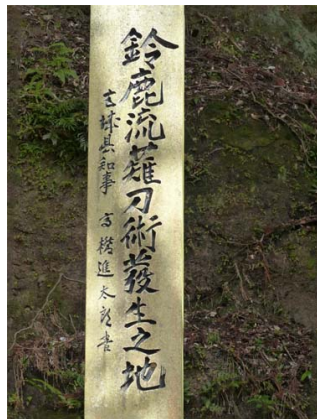 鈴鹿流薙刀術發生之地
宮城県知事 高橋進太郎書